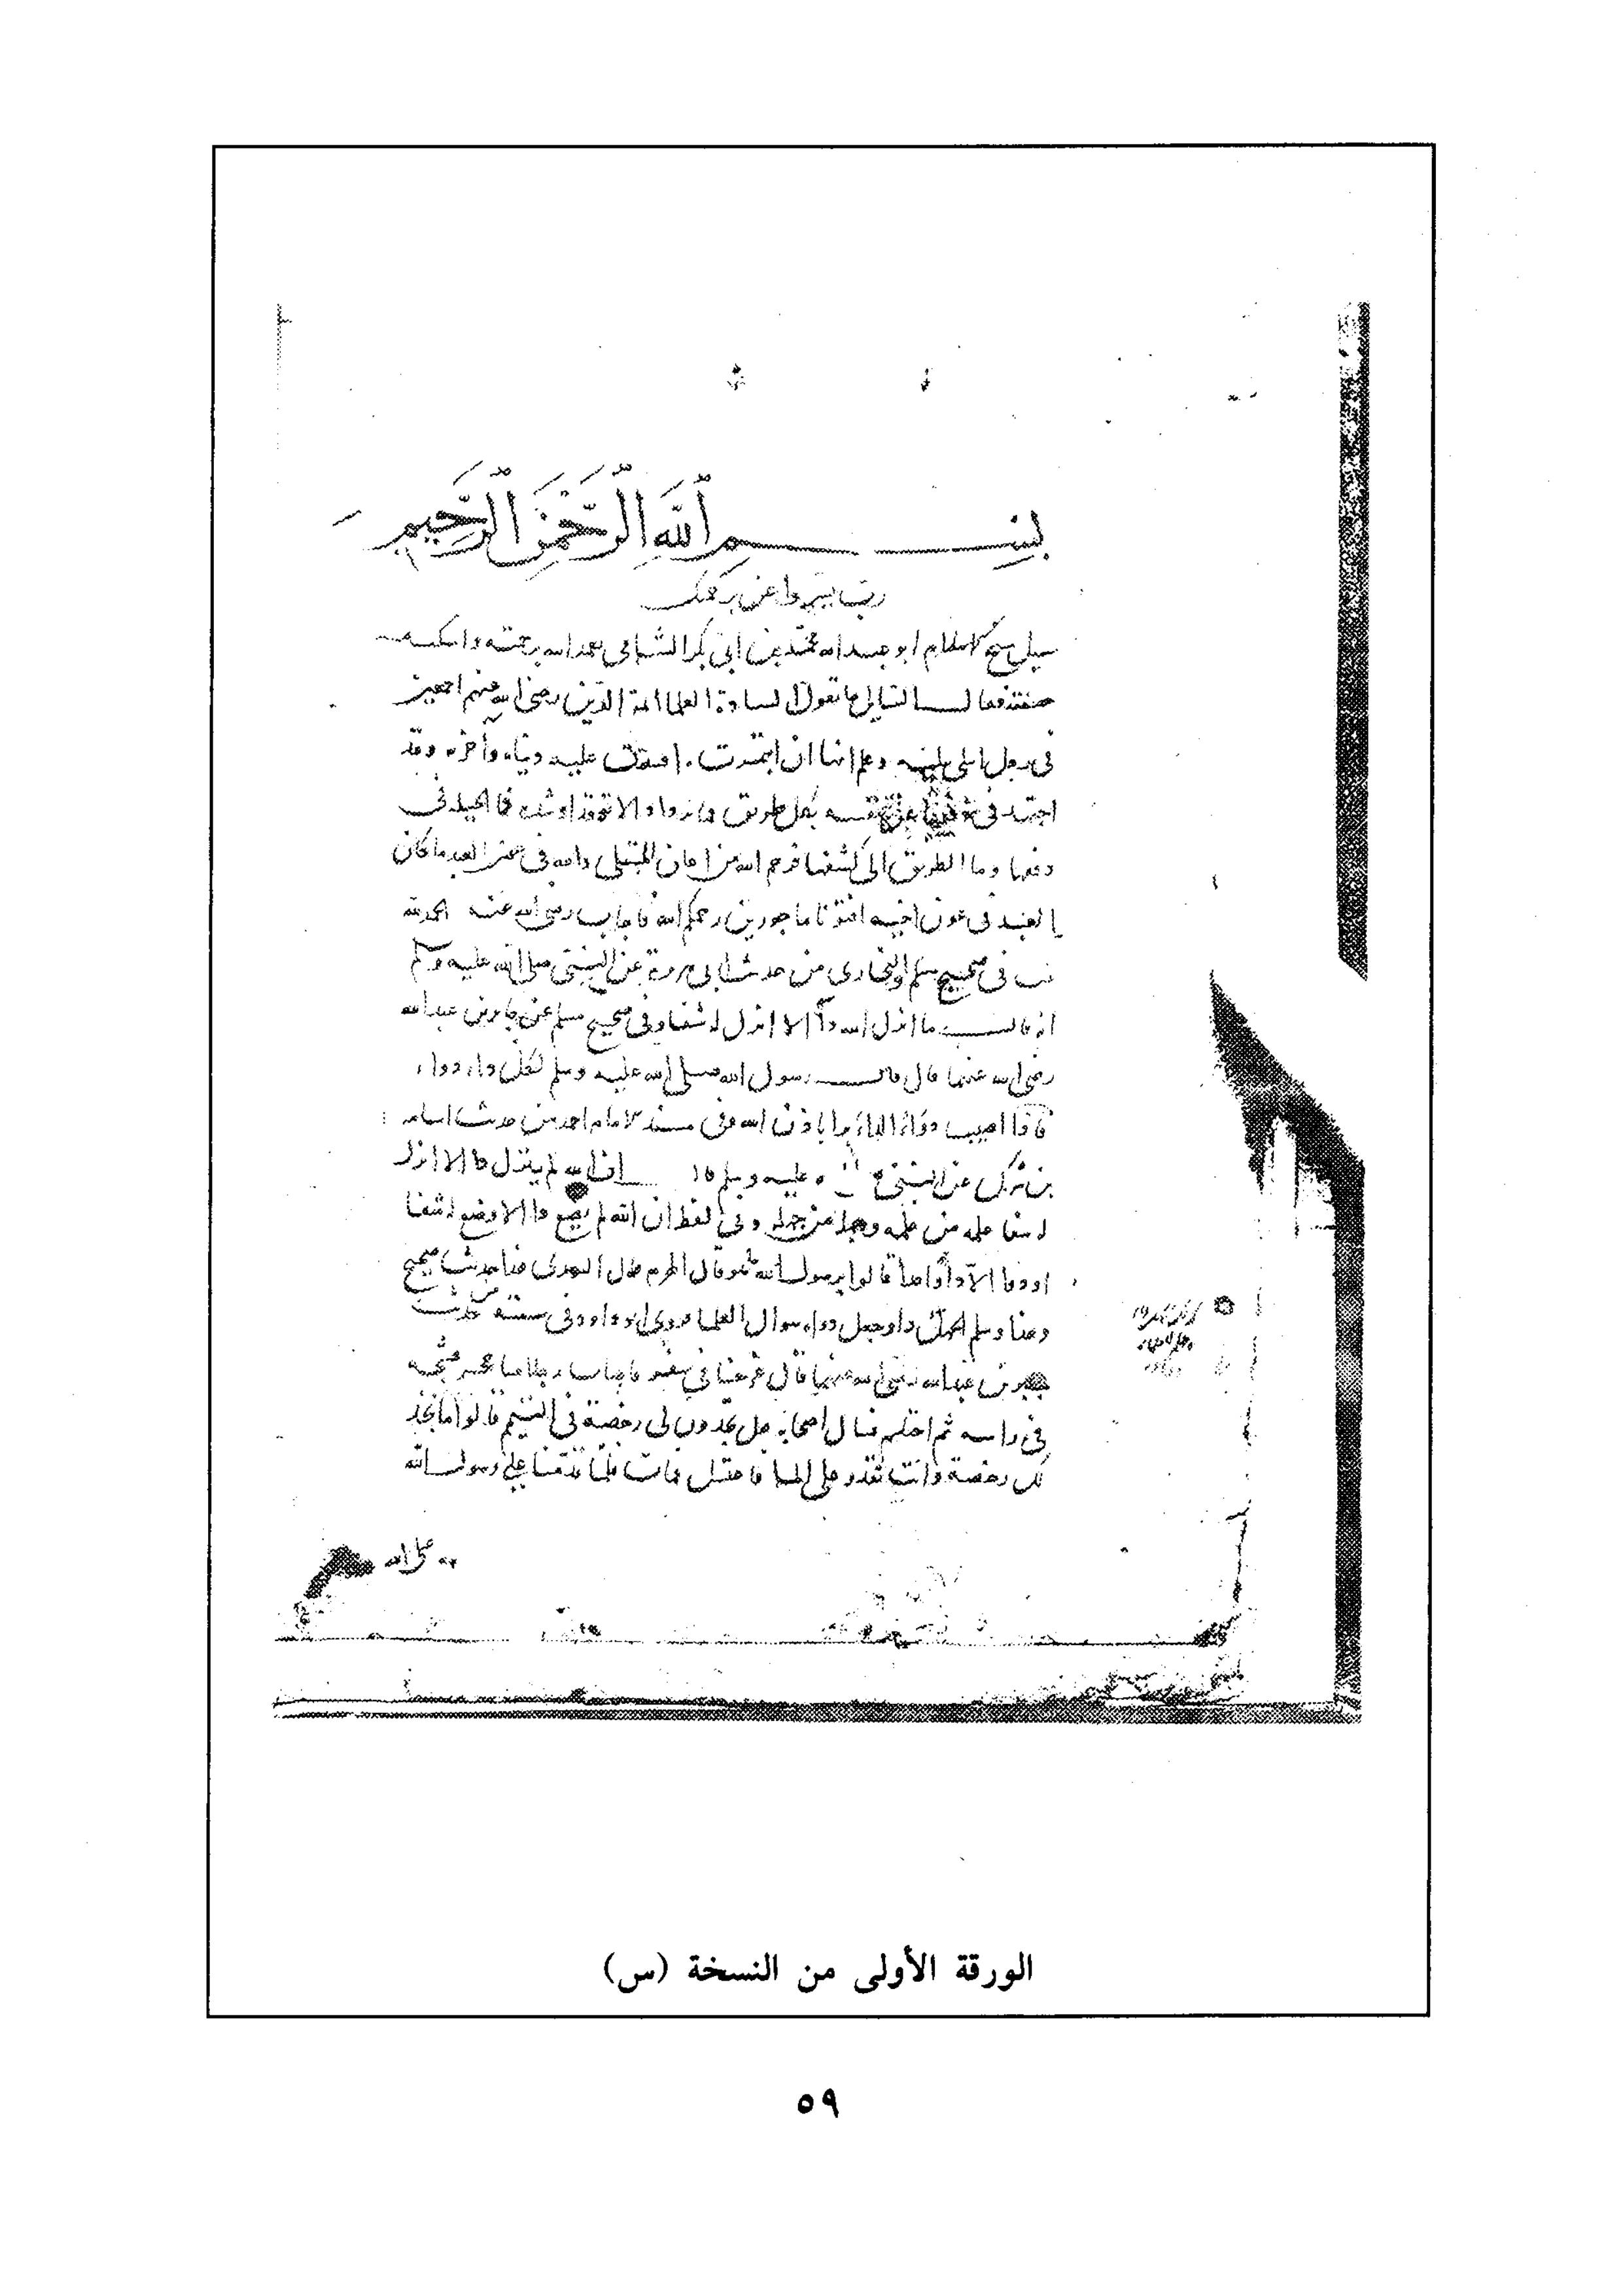 بسم الله الرحمن الرحيم
رب يسر واعن برحمتك
سيل شيخ الاسلام ابو عبد الله محمد بن ابي بكر الشافي تغمده الله برحمته واسكنه
جنته فقال السايل ما تقول السادة العلما ايمة الدين رضي الله عنهم اجمعين
في رجل ابتلي ببليه وعلم انها ان استمرت افسدت عليه دنياه وآخرته وقد
اجتهد في دفعها عن نفسه بكل طريق وما تزداد الا توقدا وشدة فما الحيلة في
دفعها وما الطريق الى كشفها فرحم الله من اعان المبتلى والله في عون العبد ما كان
العبد في عون اخيه افتونا ماجورين رحمكم الله فاجاب رضي الله عنه الحمد لله
ثبت في صحيح مسلم والبخاري من حديث ابي هريرة عن النبي صلى الله عليه وسلم
انه قال ما انزل الله داً الا انزل له شفا وفي صحيح مسلم عن جابر بن عبد الله
رضي الله عنهما قال قال رسول الله صلى الله عليه وسلم لكل داء دواء
فاذا اصيب دواء الداء برا باذن الله وفي مسند الامام احمد من حديث اسامه
بن شريك عن النبي عليه وسلم قال ان الله لم ينزل دا الا انزل
له شفا علمه من علمه وجهله من جهله وفي لفظ ان الله لم يضع دا الا وضع له شفا
او دوا الا داً واحداً قالوا يرسول الله ما هو قال الهرم قال الترمذي هذا حديث صحيح
وجعل دواه سوال العلما فروى ابو داود في سننه من حديث
جابر بن عبد الله رضي الله عنهما قال خرجنا في سفر فاصاب رجلا منا حجر فشجه
في راسه ثم احتلم فسال اصحابه هل تجدون لي رخصة في التيمم قالوا ما نجد
لك رخصة وانت تقدر على الما فاغتسل فمات فلما قدمنا على رسول الله
صلى الله
الورقة الأولى من النسخة (س)
٥٩